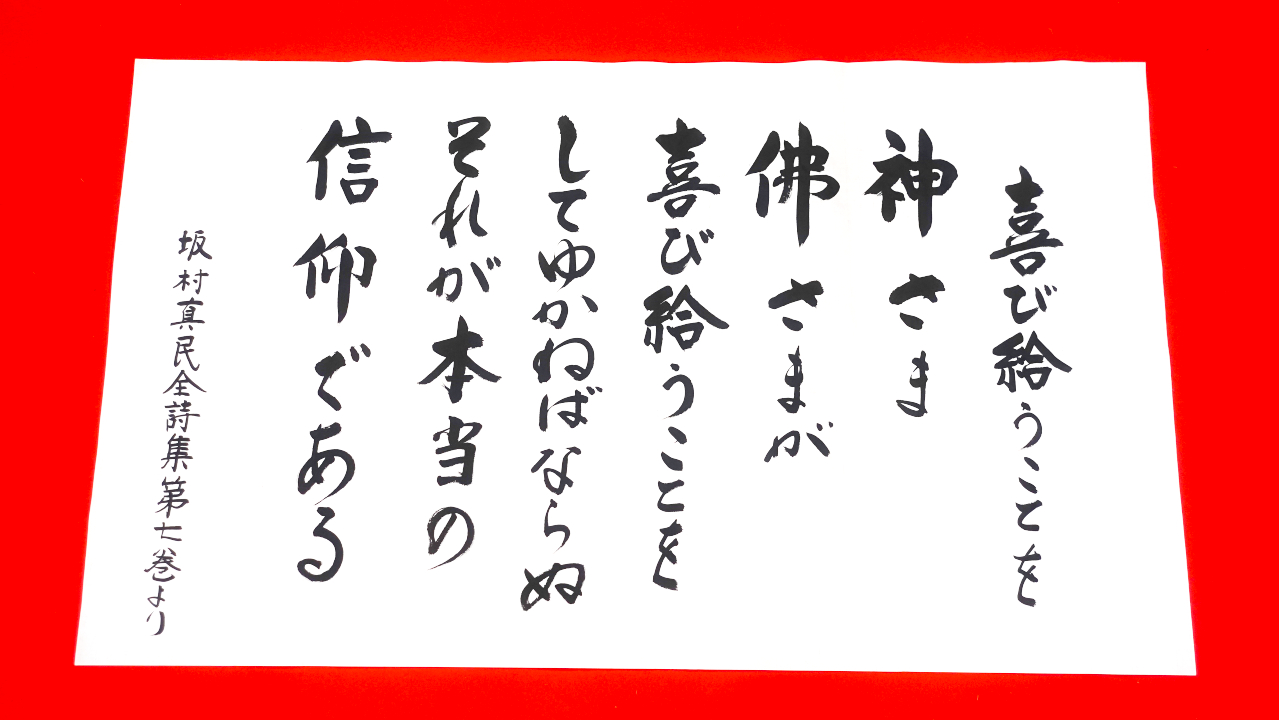 喜び給うことを
神さま
佛さまが
喜び給うことを
してゆかねばならぬ
それが本当の
信仰である
坂村真民全詩集第七巻より